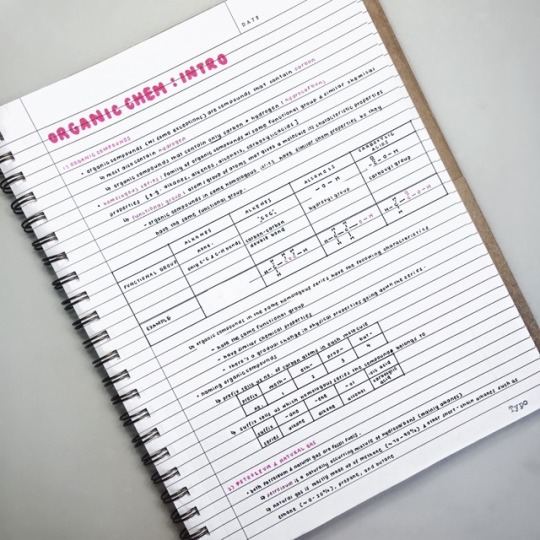 DATE
ORGANIC CHEM : INTRO
1) ORGANIC COMPOUNDS
• organic compounds (w/ some exceptions) are compounds that contain carbon
↳ most also contain hydrogen
↳ organic compounds that contain only carbon & hydrogen : hydrocarbons
• homologous series : family of organic compounds w/ same functional group & similar chemical
properties [e.g. alkanes, alkenes, alcohols, carboxylic acids]
↳ functional group : atom / group of atoms that gives a molecule its characteristic properties
- organic compounds in same homologous series have similar chem properties bc they
have the same functional group.
ALKANES ALKENES ALCOHOLS CARBOXYLIC ACIDS
FUNCTIONAL GROUP
none. only C-C & C-H bonds
"C=C" carbon-carbon double bond
-O-H hydroxyl group
carboxyl group
EXAMPLE
↳ organic compounds in the same homologous series have the following characteristics
- have the same functional group
- have similar chemical properties
- there's a gradual change in physical properties going down the series.
• naming organic compounds
↳ prefix tells us no. of carbon atoms in each molecule
prefix meth- eth- prop- but-
no. 1 2 3 4
↳ suffix tells us which homologous series the compounds belongs to
suffix -ane -ene -ol -oic acid
series alkane alkene alcohol carboxylic acid
2) PETROLEUM & NATURAL GAS
• both petroleum & natural gas are fossil fuels.
↳ petroleum is a naturally occurring mixture of hydrocarbons (mainly alkanes)
↳ natural gas is mainly made up of methane (~70-90%) & other short-chain alkanes such as
ethane (~0-20%), propane, and butane
typo